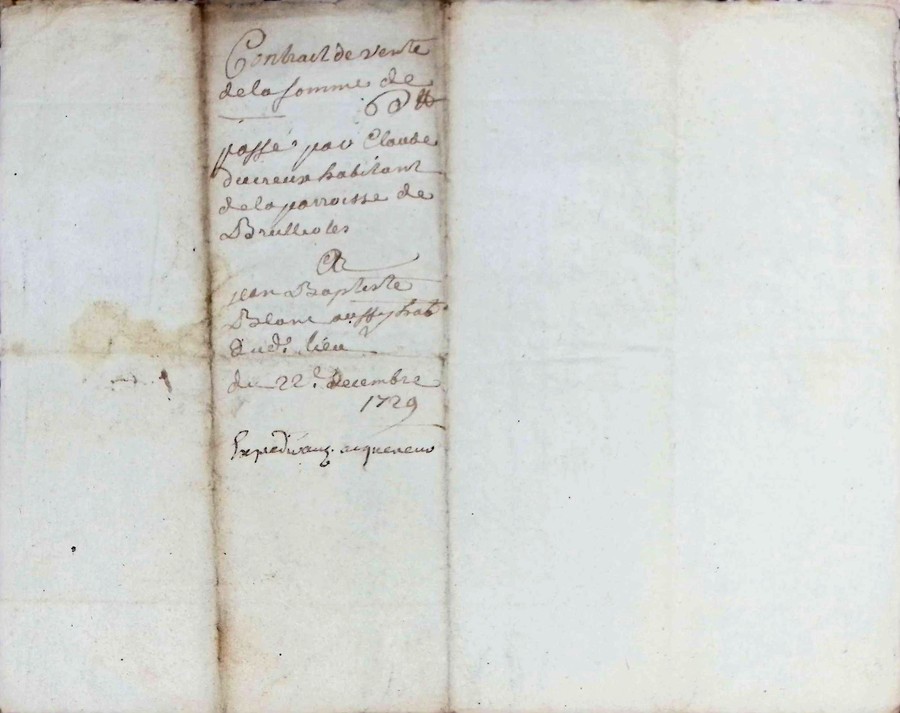 Contract de vente
de la somme de
60 ₶
passé par Claude
ducreux habitant
de la parroisse de
Brullioles
A
jean Baptiste
Blanc aussy hab^t
dud^t lieu
du 22^e decembre
1729
Expedié aud.